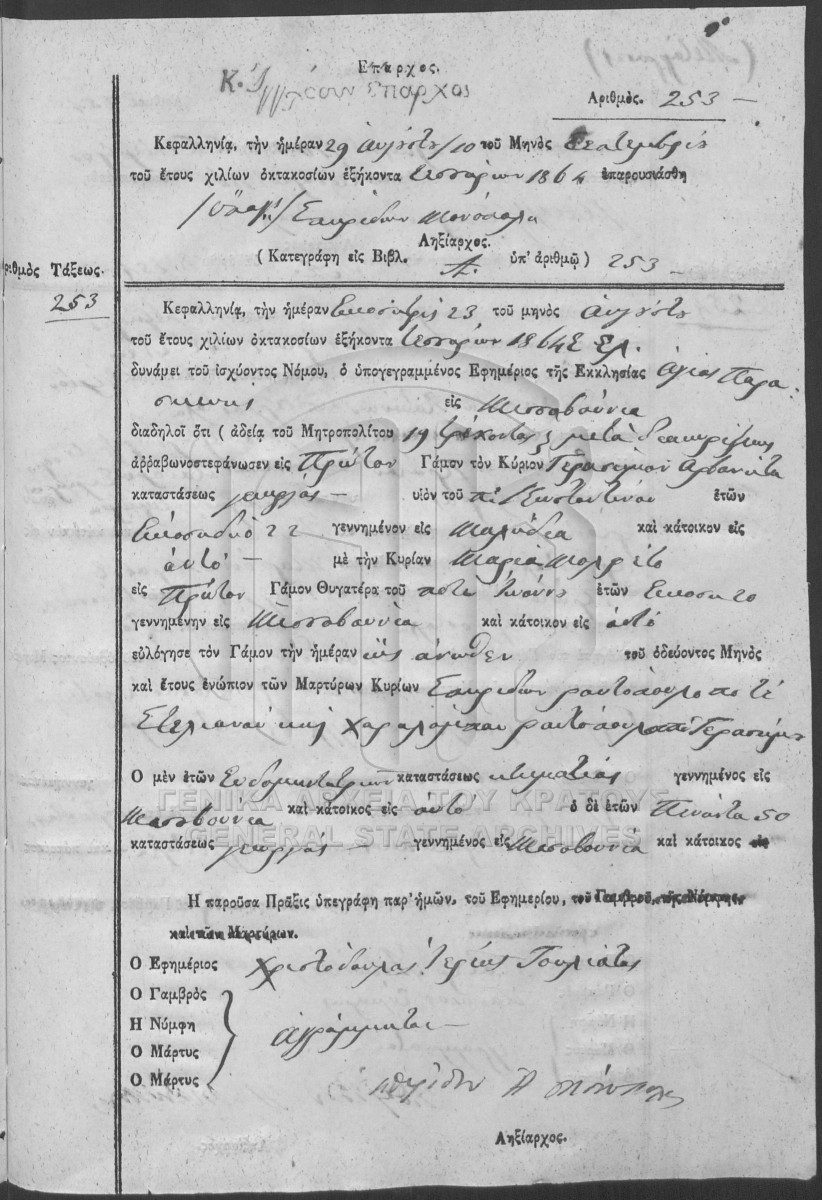 Επαρχος.
Κ. Επαρχος
Αριθμὸς. 253 —
Κεφαλληνίᾳ, τὴν ἡμέραν 29 Αυγούστου/10 τοῦ Μηνὸς Σεπτεμβρίου
τοῦ ἔτους χιλίων ὀκτακοσίων ἑξήκοντα τεσσάρων 1864 ἐπαρουσιάσθη
Σπυρίδων
Ληξίαρχος.
( Κατεγράφη εἰς Βιβλ. Α. ὑπ' ἀριθμῷ ) 253 —
Αριθμὸς Τάξεως.
253
Κεφαλληνίᾳ, τὴν ἡμέραν Εικοσιτρις 23 τοῦ μηνὸς Αυγούστου
τοῦ ἔτους χιλίων ὀκτακοσίων ἑξήκοντα τεσσάρων 1864 Ε. Π.
δυνάμει τοῦ ἰσχύοντος Νόμου, ὁ ὑπογεγραμμένος Εφημέριος τῆς Εκκλησίας Αγιας Παρα
σκευης εἰς Μεσοβουνια
διαδηλοῖ ὅτι ( ἀδείᾳ τοῦ Μητροπολίτου 19 τρέχοντος ) μετὰ
ἀῤῥαβωνοστεφάνωσεν εἰς Πρῶτον Γάμον τὸν Κύριον Γεράσιμον
καταστάσεως γεωργός — υἱὸν τοῦ Κωσταντίνου ἐτῶν
Εικοσιδυο 22 γεννημένον εἰς καὶ κάτοικον εἰς
αυτό — μὲ τὴν Κυρίαν Μαρία
εἰς Πρῶτον Γάμον Θυγατέρα τοῦ ποτε ἐτῶν Εικοσι 20
γεννημένην εἰς Μεσοβουνια καὶ κάτοικον εἰς αυτό
εὐλόγησε τὸν Γάμον τὴν ἡμέραν ὡς άνωθεν τοῦ ὁδεύοντος Μηνὸς
καὶ ἔτους ἐνώπιον τῶν Μαρτύρων Κυρίων Σπυρίδων ραυτόπουλο ποτέ
Στελιανού και Χαραλάμπου ραυτόπουλο ποτέ Γερασίμου
Ο μὲν ἐτῶν καταστάσεως κτηματίας γεννημένος εἰς
Μεσοβουνια καὶ κάτοικος εἰς αυτό ὁ δὲ ἐτῶν Πενῆντα 50
καταστάσεως γεωργός — γεννημένος εἰς Μεσοβουνια καὶ κάτοικος εἰς
Η παροῦσα Πρᾶξις ὑπεγράφη παρ' ἡμῶν, τοῦ Εφημερίου, τοῦ Γαμβροῦ, τῆς Νύμφης,
καὶ τῶν Μαρτύρων.
Ο Εφημέριος Χριστόδουλος Ιερεύς
Ο Γαμβρὸς
Η Νύμφη
αγράμματοι —
Ο Μάρτυς
Ο Μάρτυς
Ληξίαρχος.
ΓΕΝΙΚΑ ΑΡΧΕΙΑ ΤΟΥ ΚΡΑΤΟΥΣ
GENERAL STATE ARCHIVES